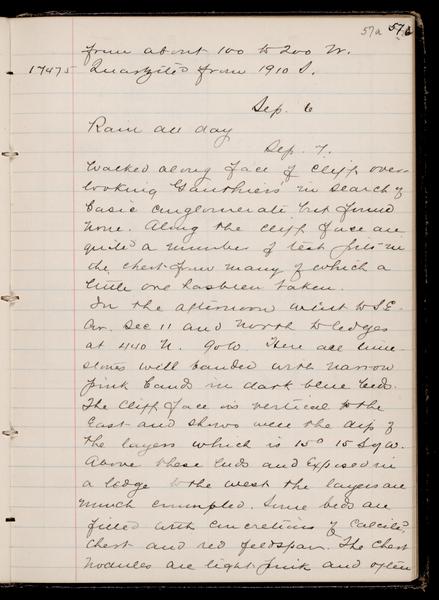 57a 57b
from about 100 to 200 W.
17475 Quartzite from 1910 S.
Sep. 6
Rain all day
Sep. 7.
Walked along face of cliff over-
looking Gauthiers in search of
basic conglomerate but found
none. Along the cliff face are
quite a number of test pits in
the chert from many of which a
little ore has been taken.
In the afternoon went to S.E.
Cor. Sec 11 and North to ledges
at 440 N. 90 W. Here are lime-
stones well banded with narrow
pink bands in dark blue beds.
The cliff face is vertical to the
East and shows well the dip of
the layers which is 15° 15 S of W.
Above these beds and exposed in
a ledge to the west the layers are
much crumpled. Some beds are
filled with concretions of calcite,
chert and red feldspar. The chert
nodules are light pink and often